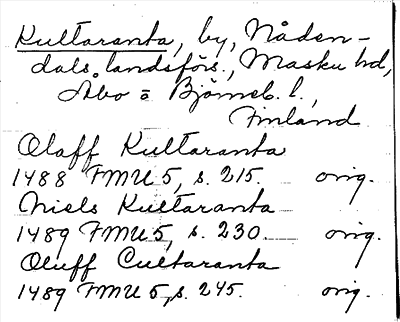 Kultaranta, by, Nåden-
dals landsförs., Masku hd,
Åbo o Björneb. l.,
Finland
Olaff Kultaranta
1488 FMU 5, s. 215. orig.
Niels Kultaranta
1489 FMU 5, s. 230. orig.
Oluff Cultaranta
1489 FMU 5, s. 245. orig.